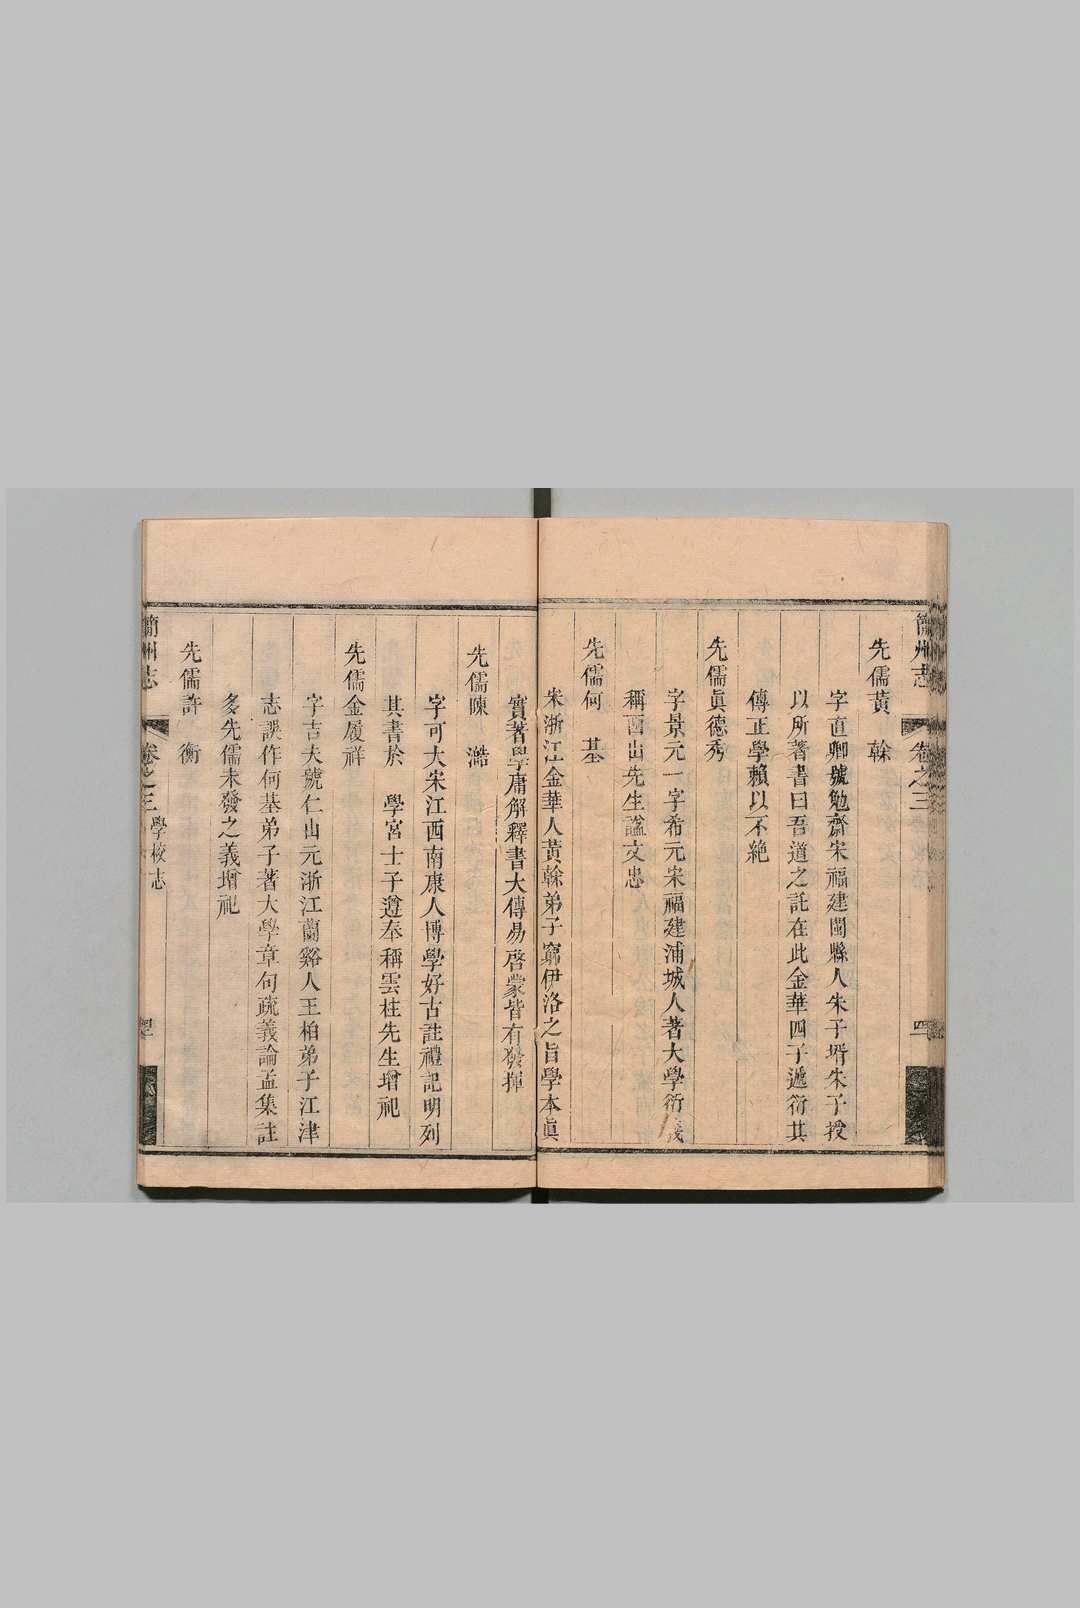 簡州志
卷之三
四
先儒黃　榦
字直卿號勉齋宋福建閩縣人朱子壻朱子授
以所著書曰吾道之託在此金華四子遞衍其
傳正學賴以不絶
先儒眞德秀
字景元一字希元宋福建浦城人著大學衍義
稱西山先生諡文忠
先儒何　基
宋浙江金華人黃榦弟子窮伊洛之旨學本眞
實著學庸解釋書大傳易啓蒙皆有發揮
先儒陳　澔
字可大宋江西南康人博學好古註禮記明列
其書於　學宮士子遵奉稱雲柱先生增祀
先儒金履祥
字吉夫號仁山元浙江蘭谿人王柏弟子江津
志誤作何基弟子著大學章句疏義論孟集註
多先儒未發之義增祀
先儒許　衡
簡州志
卷之三
學校志